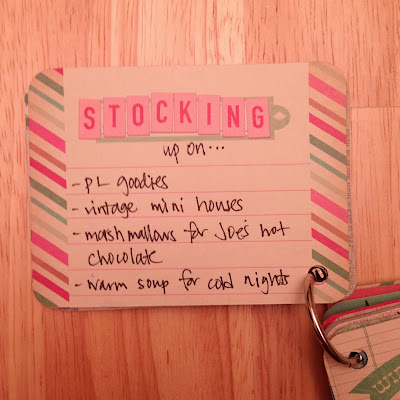 STOCKING
up on...
- PL goodies
- vintage mini houses
- mashmallows for Joe's hot
chocolate
- warm soup for cold nights